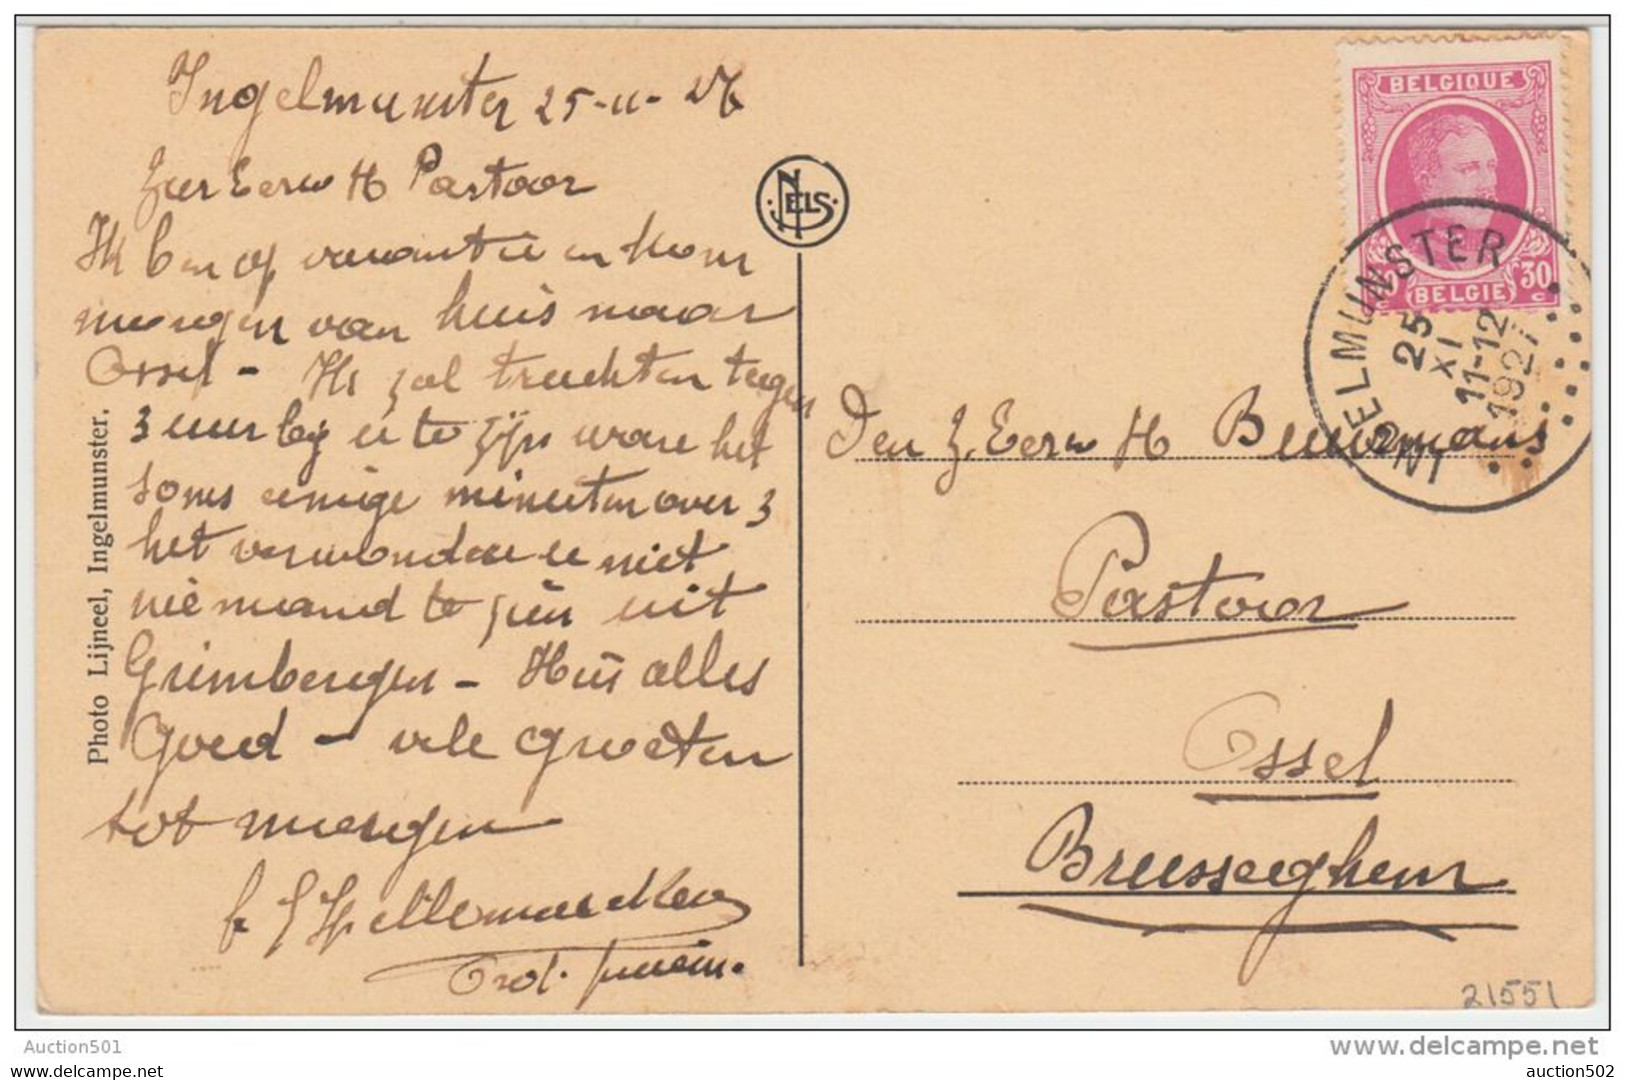 Ingelmunster 25-11-27
Zeer Eerw H Pastoor
Ik ben op vacantie en kom
morgen van huis naar
Ossel - Ik zal trachten tegen
3 uur bij u te zijn ware het
soms eenige minuten over 3
het verwondere u niet
niemand te zien uit
Grimbergen - Hier alles
Goed - vele groeten
tot morgen
Photo Lijneel, Ingelmunster.
NELS
BELGIQUE
30 c
BELGIE
INGELMUNSTER
25
XI
11-12
1927
Den Z. Eerw H Buurmans
Pastoor
Ossel
Brusseghem
21551
Auction501
www.delcampe.net
auction501
auction502